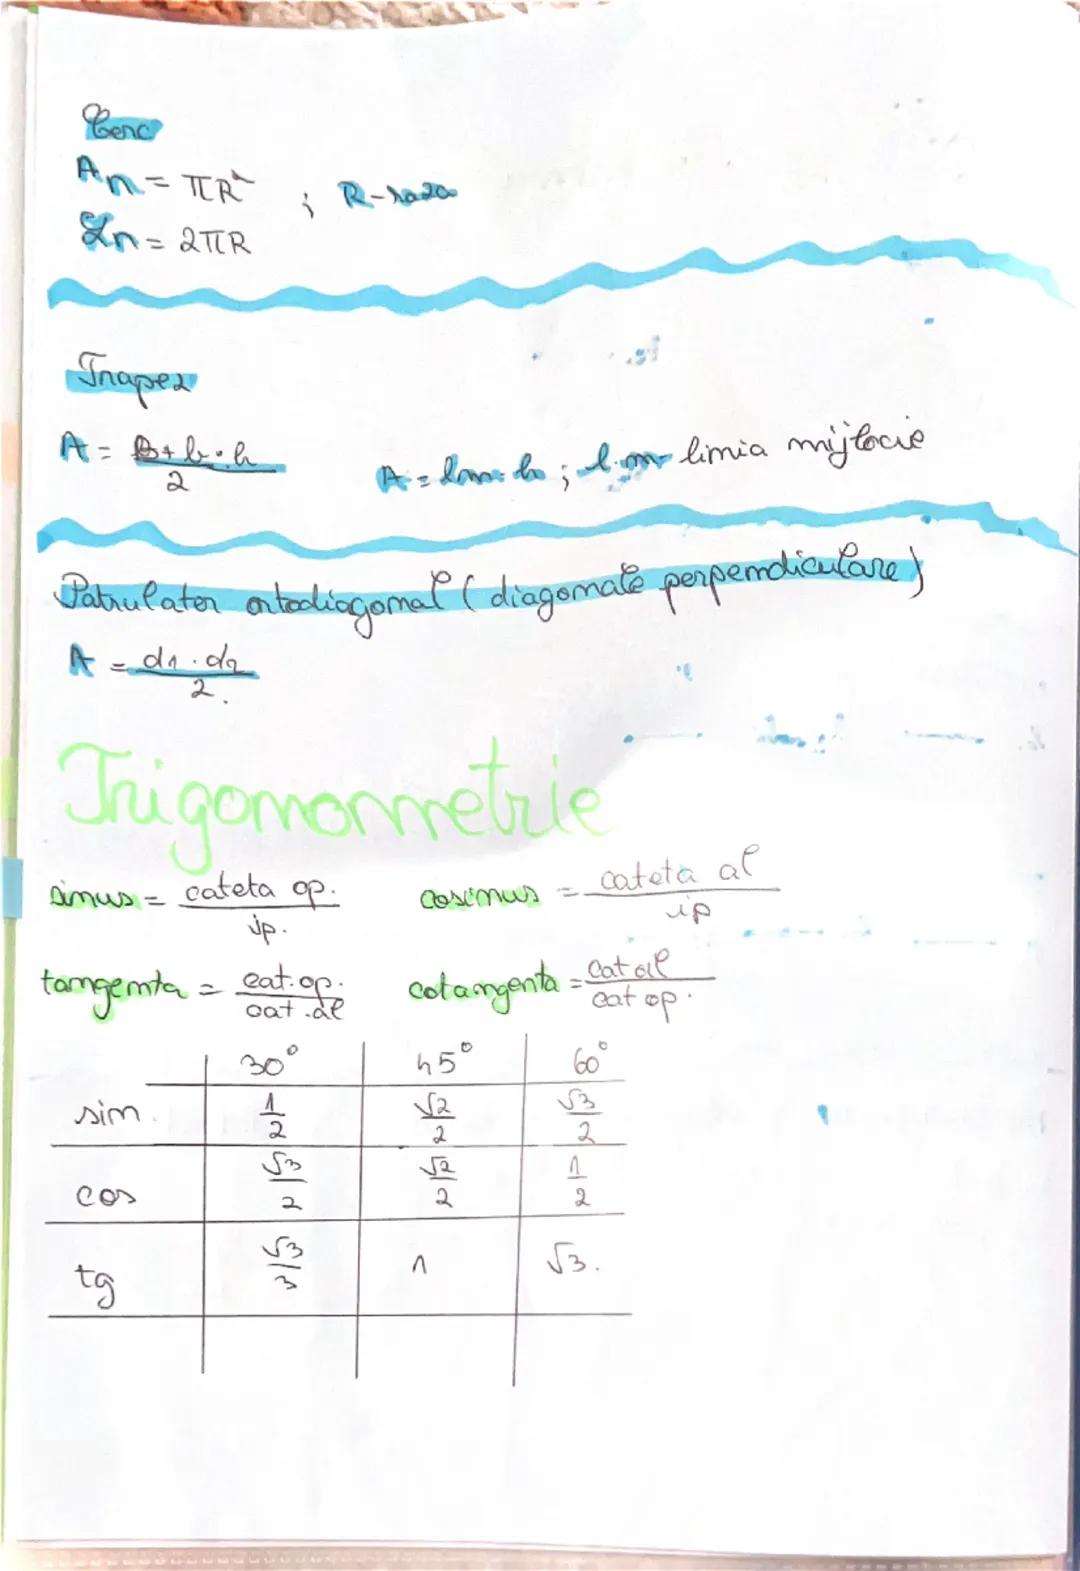 Cerc
An = πR² ; R-raza
Ln = 2πR
Trapez
A = B+b·h / 2 A = lm·h ; l.m limia mijlocie
Patrulater ortodiagomal (diagomale perpemdiculare)
A = d1 . d2 / 2.
Trigomonmetrie
simus = cateta op. / ip. cosimus = cateta al / ip
tamgemta = cat.op. / cat.al cotamgenta = cat al / cat op.
30° 45° 60°
sim. 1/2 √2/2 √3/2
cos √3/2 √2/2 1/2
tg √3/3 1 √3.